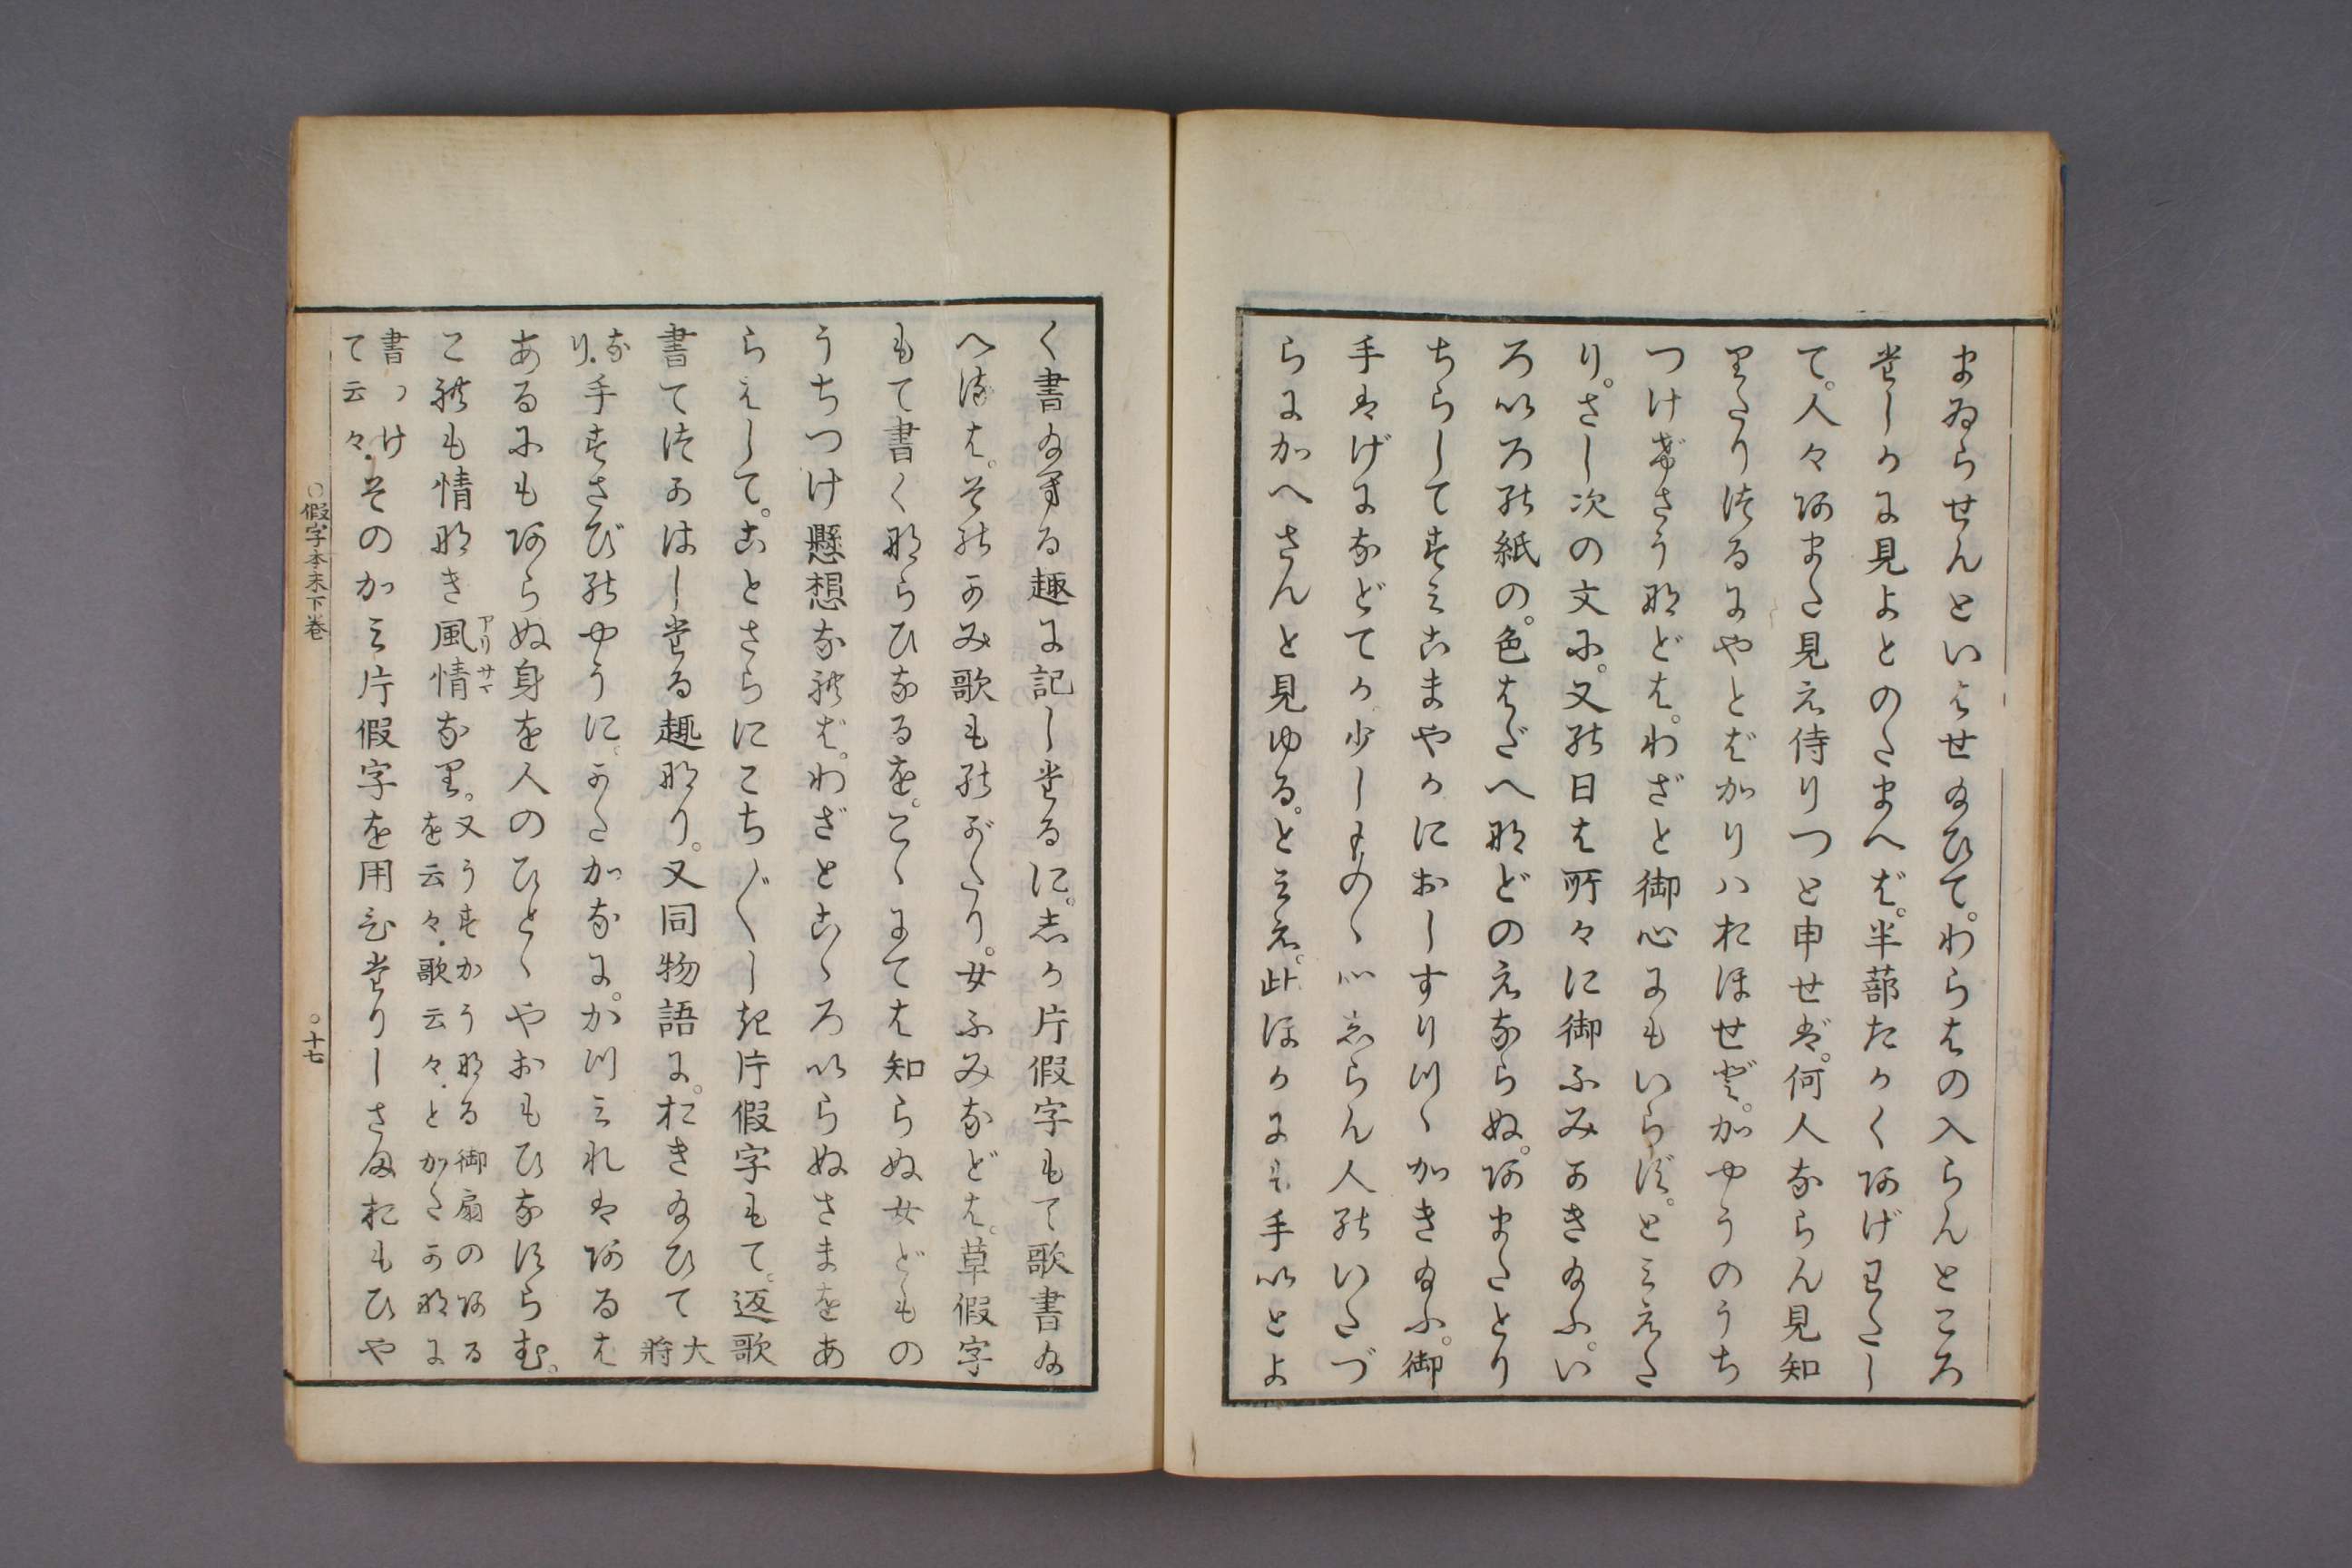 まゐらせんといはせ給ひて。わらはの入らんところ
たしかに見よとのたまへば。半蔀たかくあげわたし
て。人々あまた見え侍りつと申せば。何人ならん見知
りたりつるにやとばかりハおほせど。かやうのうち
つけげさうなどは。わざと御心にもいらず。とミえた
り。さし次の文に。又の日は所々に御ふみかき給ふ。い
ろいろの紙の。色はだへなどのえならぬ。あまたとり
ちらしてすミこまやかにおしすりつゝかき給ふ。御
手はげになどてか少しものゝ心しらん人のいたづ
らにかへさんと見ゆる。とミえ。此ほかにも手いとよ
く書給へる趣に記したるに。しか片假字もて歌書給
へるは。そのかみ歌ものがたり。女ふみなどは。草假字
もて書くならひなるを。こゝにては知らぬ女どもの
うちつけ懸想なれば。わざとこゝろいらぬさまをあ
らはして。ことさらにこち〴〵しき片假字もて。返歌
書てつかはしたる趣なり。又同物語に。おき給ひて大將
なり.手すさびのやうに。かたかなに。かつミれはあるは
あるにもあらぬ身を人のひとゝやおもひなすらむ。
これも情なき風情アリサマなり。又うすかうなる御扇のある
を云々.歌云々.とかたかなに
書つけ
て云々.そのかミ片假字を用ひたりしさまおもひや
○假字本末下巻
○十七